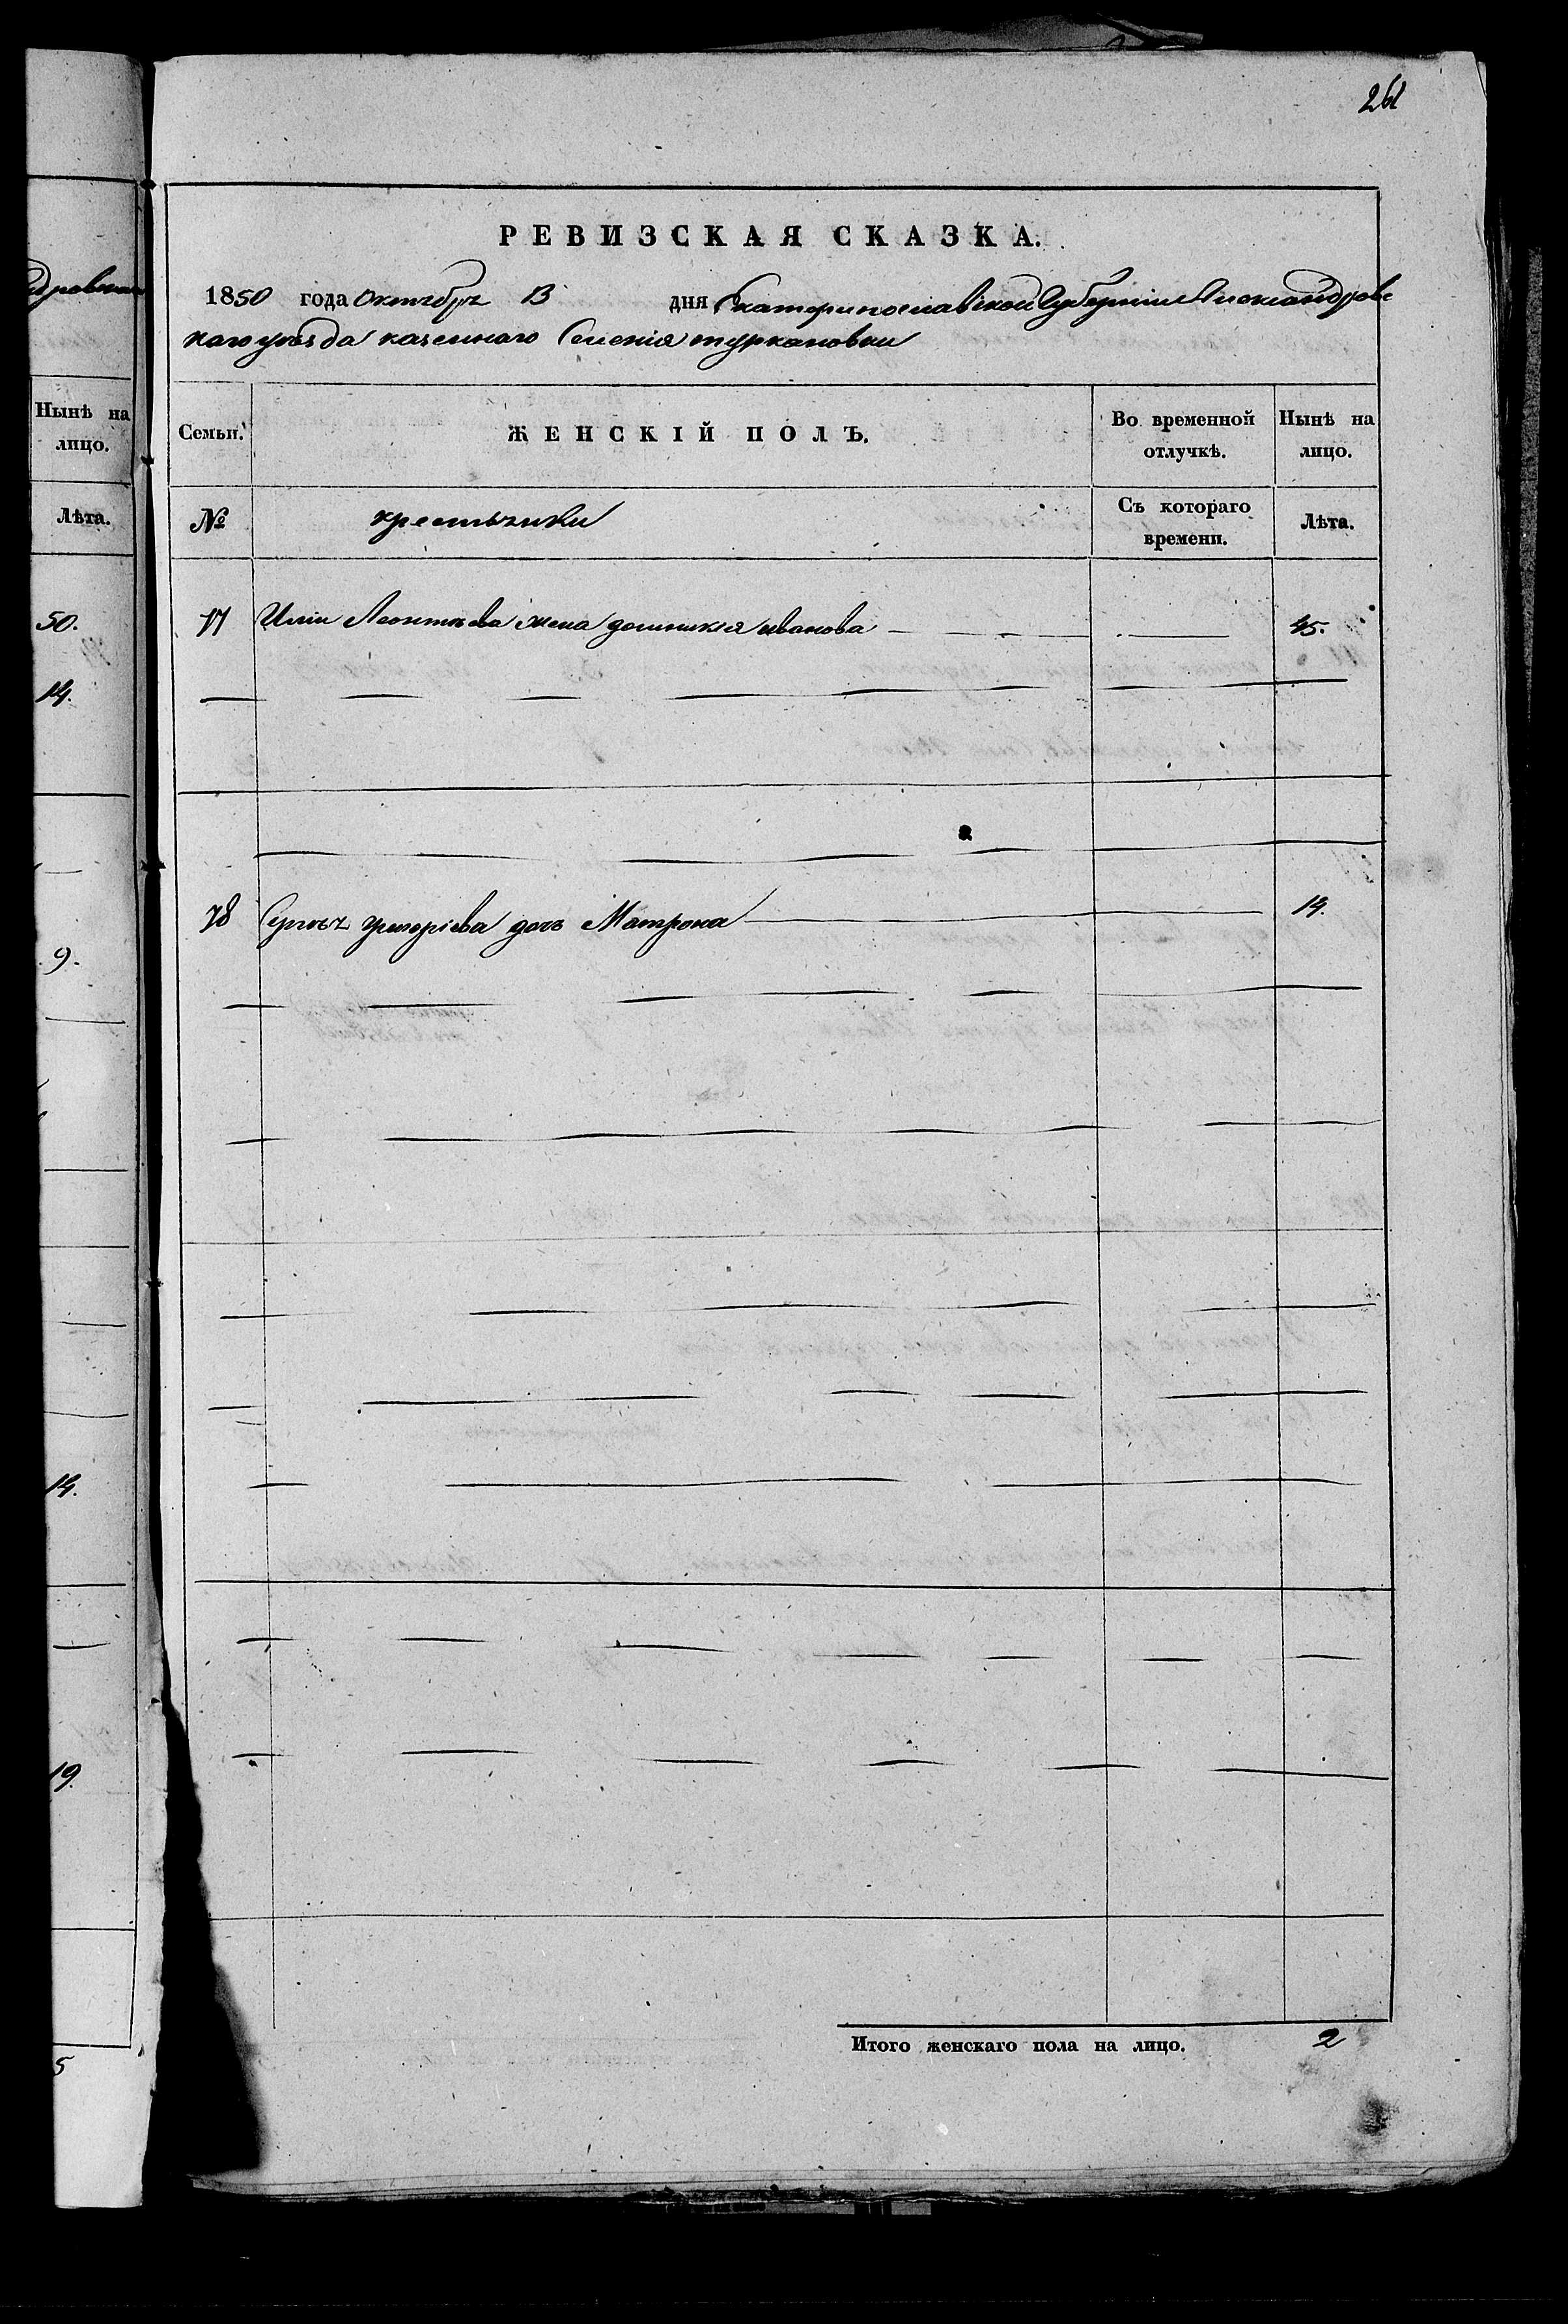 261
РЕВИЗСКАЯ СКАЗКА.
1850 года Октября 13 дня Екатеринославской Губернiи Александровс
каго уѣзда казеннаго Селенiя туркановки
Семьи. ЖЕНСКІЙ ПОЛЪ. Во временной отлучкѣ. Нынѣ на лицо.
№ крестьянки Съ котораго времени. Лѣта.
77 Илiи Леонтьева жена домникiя иванова 45.
78 Сергѣя григорiева дочь Матрона 14.
Итого женскаго пола на лицо. 2
Нынѣ на
лицо.
Лѣта.
50.
14.
9.
14.
19.
5